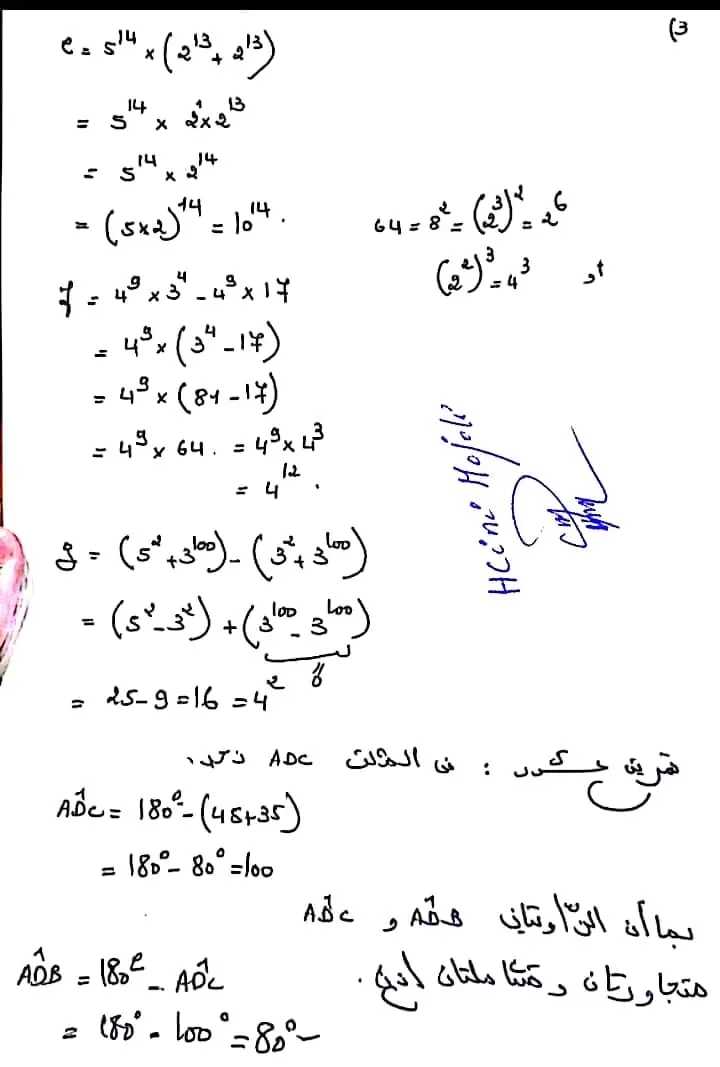 (3
e = 5¹⁴ × (2¹³ + 2¹³)
= 5¹⁴ × 2¹ × 2¹³
= 5¹⁴ × 2¹⁴
= (5×2)¹⁴ = 10¹⁴.
64 = 8² = (2³)² = 2⁶
أو (2²)³ = 4³
f = 4⁹ × 3⁴ - 4⁹ × 17
= 4⁹ × (3⁴ - 17)
= 4⁹ × (81 - 17)
= 4⁹ × 64. = 4⁹ × 4³
= 4¹².
HCini
g = (5² + 3¹⁰⁰) - (3² + 3¹⁰⁰)
= (5² - 3²) + (3¹⁰⁰ - 3¹⁰⁰)
0
= 25 - 9 = 16 = 4²
تمرين : في المثلث ADC
AD̂C = 180° - (45+35)
= 180° - 80° = 100
بما أن الزّاويتان AD̂B و AD̂C
متجاورتان و متكاملتان إذن.
AD̂B = 180° - AD̂C
= 180° - 100° = 80°